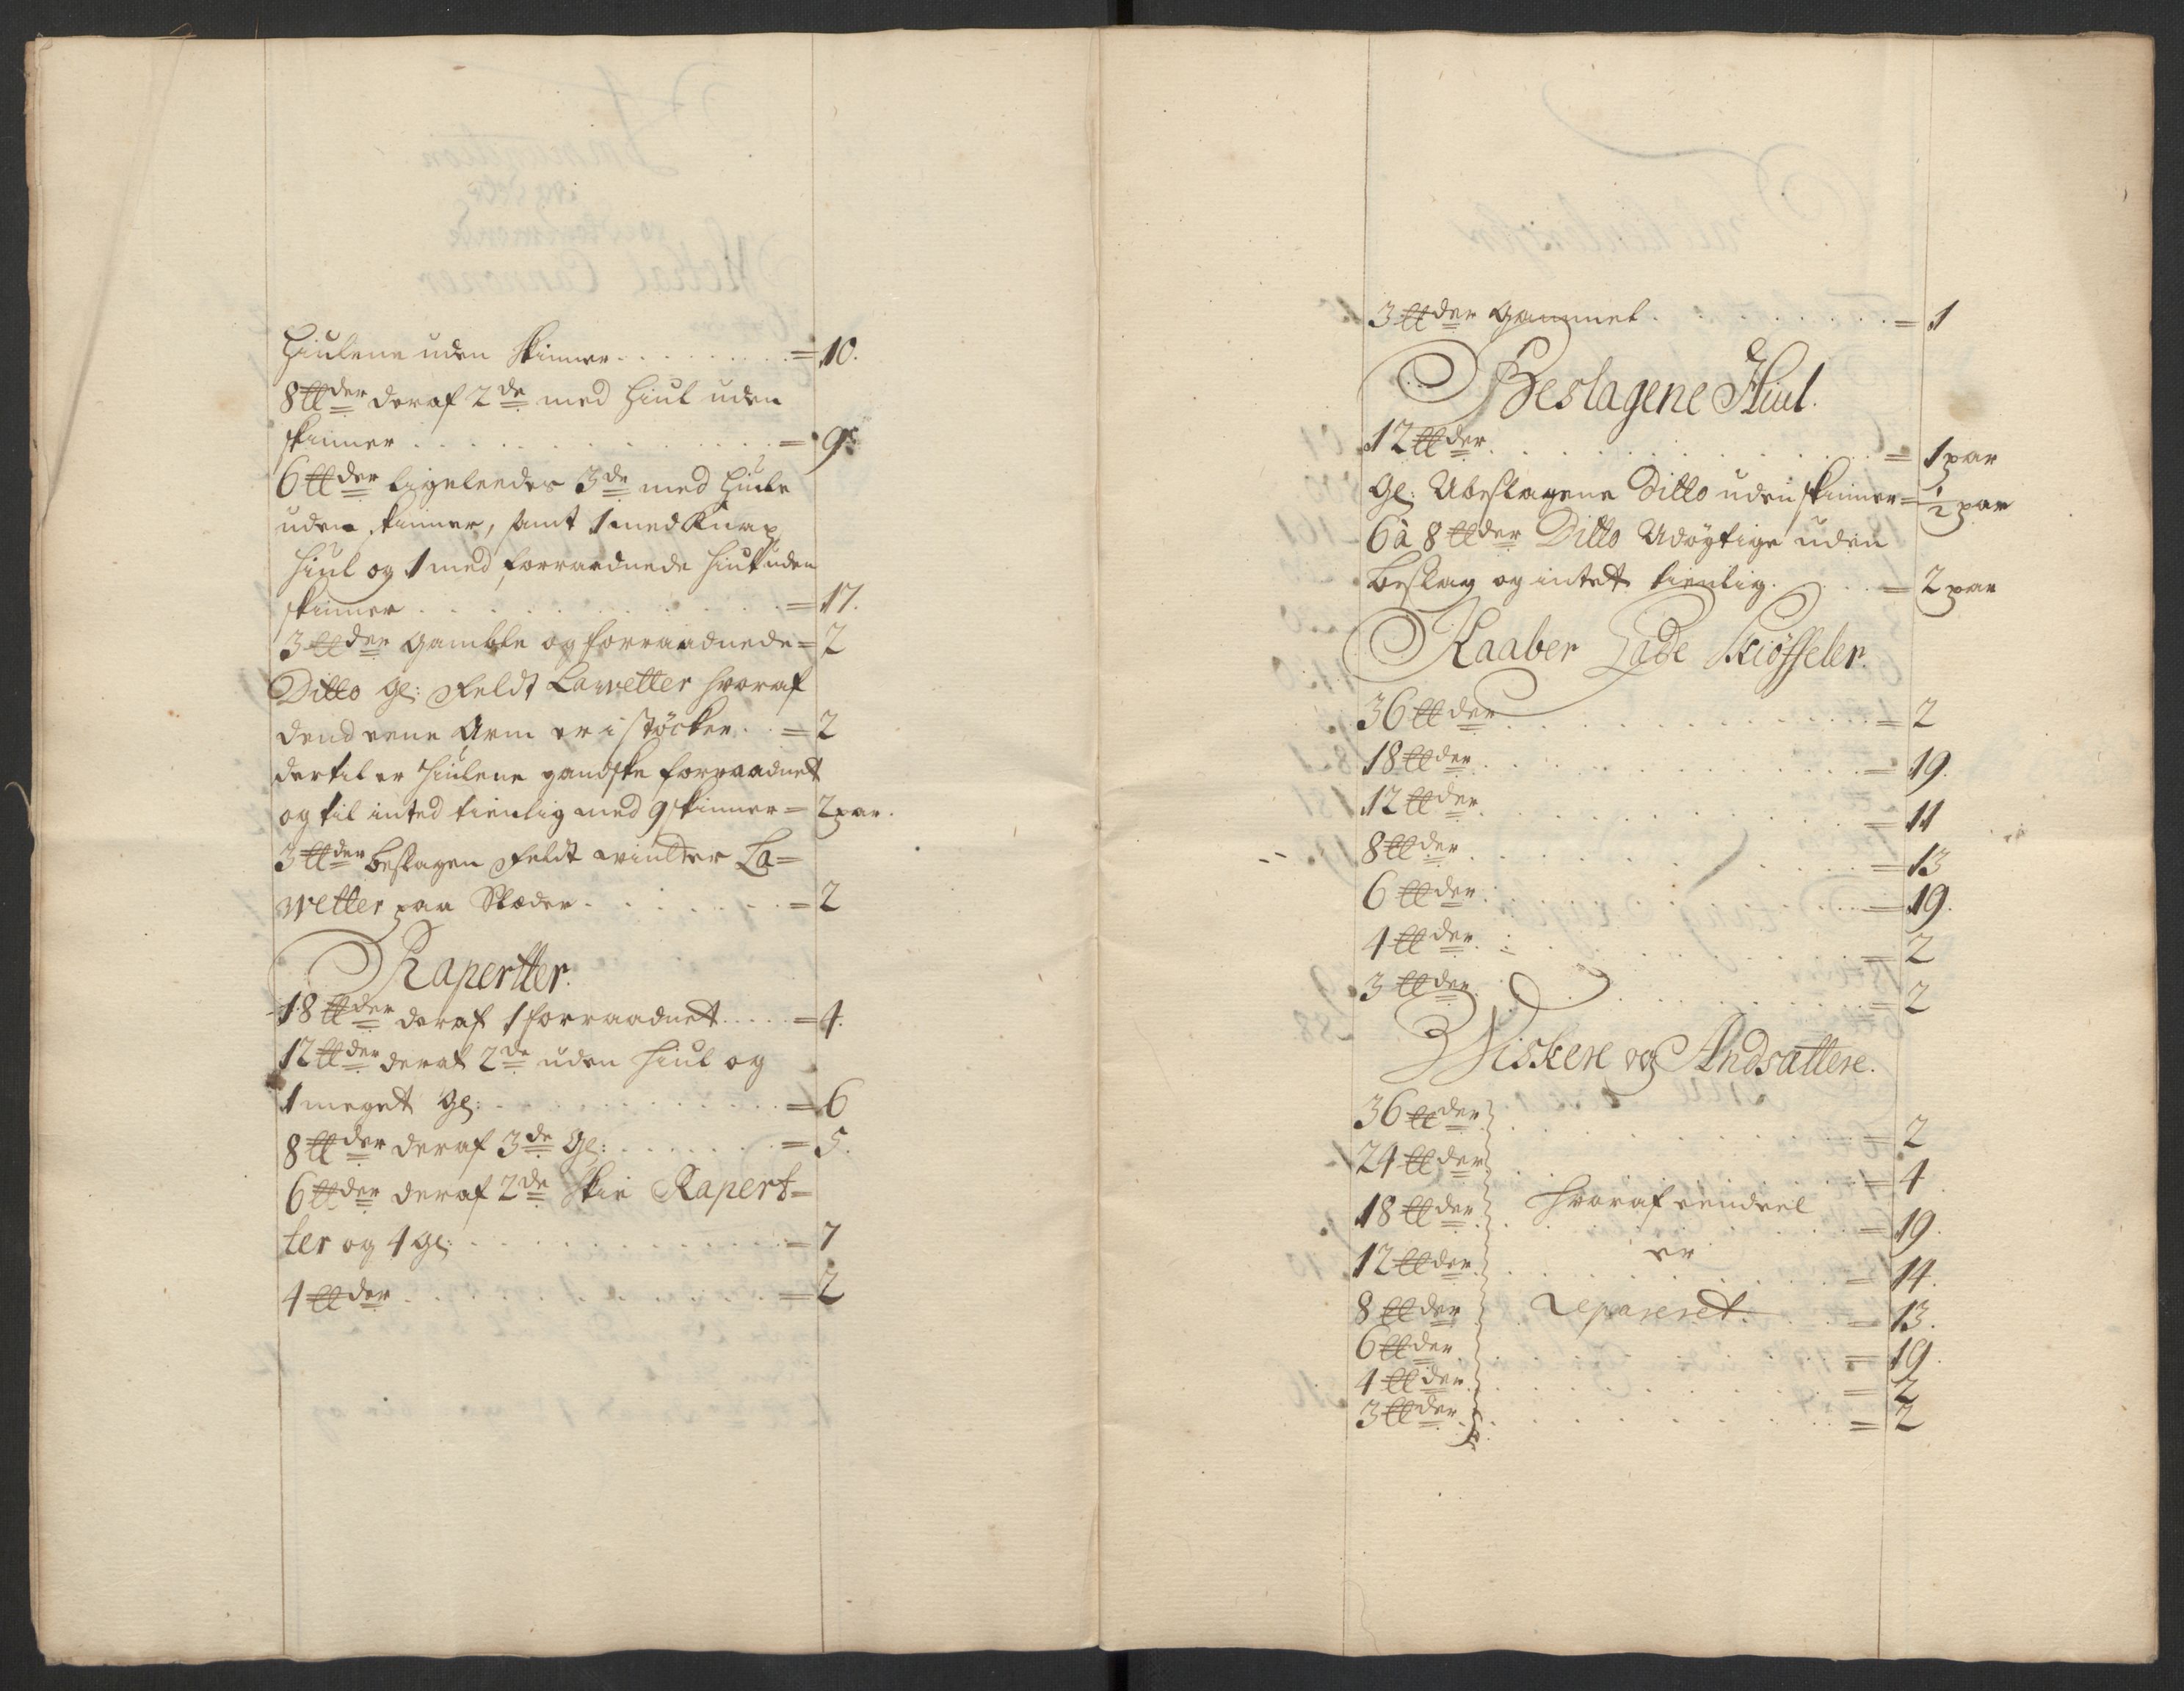 Hiulene uden Skinner . . . . . . . . = 10.
8 ℔der deraf 2de med Hiul uden
skinner . . . . . . . . . . . . = 9
6 ℔der ligeleedes 3de med Hiule
uden skinner, samt 1 med Knap
Hiul og 1 med forraadnede Hiul uden
skinner . . . . . . . . . . . = 17.
3 ℔der Gamble og forraadnede = 2
Ditto Gl: Feldt Lawetter hvoraf
dend eene Arm er i støcker . . = 2
dertil er Hiulene gandske forraadnet
og til inted tienlig med 9 skinner = 2 par.
3 ℔der beslagen Feldt winther La=
wetter paa Slæder . . . . . . . = 2
Rapertter.
18 ℔der deraf 1 forraadnet . . . . = 4.
12 ℔der deraf 2de uden Hiul og
1 meget Gl: . . . . . . . . . . = 6
8 ℔der deraf 3de Gl: . . . . . . = 5.
6 ℔der deraf 2de Skie Rapert=
ter og 4 Gl: . . . . . . . . . . = 7
4 ℔der . . . . . . . . . . . . = 2
3 ℔der Gammel . . . . . . . . . = 1
Beslagene Hiul.
12 ℔der . . . . . . . . . . . . = 1 par
Gl: Ubeslagene Ditto uden skinner = ½ par
6 à 8 ℔der Ditto Udøgtige uden
beslag og intet tienlig . . . . = 2 par
Kaaber Lade Skiøffeler.
36 ℔der . . . . . . . . . . . . = 2
18 ℔der . . . . . . . . . . . . = 19.
12 ℔der . . . . . . . . . . . . = 11
8 ℔der . . . . . . . . . . . . = 13
6 ℔der . . . . . . . . . . . . = 19.
4 ℔der . . . . . . . . . . . . = 2
3 ℔der . . . . . . . . . . . . = 2
Wiskere og Andsættere.
36 ℔der . . . . . . . . . . . . = 2
24 ℔der . . . . . . . . . . . . = 4
18 ℔der hvoraf eendeel . . . . = 19.
12 ℔der er . . . . . . . . . . = 14.
8 ℔der repareret . . . . . . . = 13.
6 ℔der . . . . . . . . . . . . = 19.
4 ℔der . . . . . . . . . . . . = 2
3 ℔der . . . . . . . . . . . . = 2